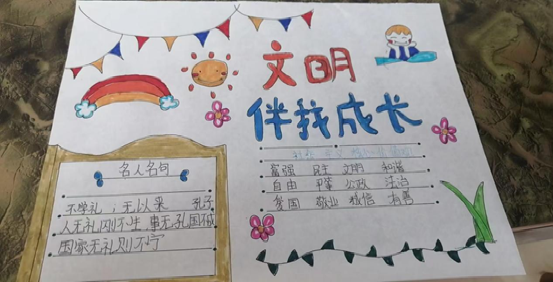 文明
伴我成长
富强 民主 文明 和谐
自由 平等 公政 法治
爱国 敬业 诚信 友善
名人名句
不学礼，无以来 孔子
人无礼则不生 事无礼国不成
国家无礼则不宁